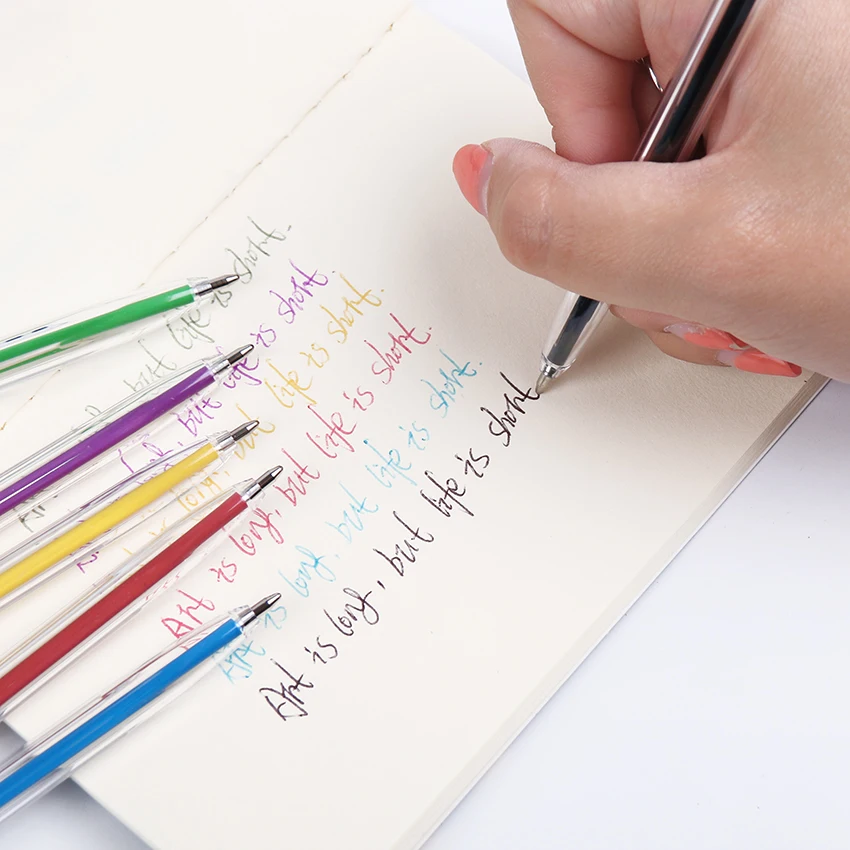 but life is short.
but life is short.
long, but life is short.
Art is long, but life is short.
Art is long, but life is short.
Art is long, but life is short